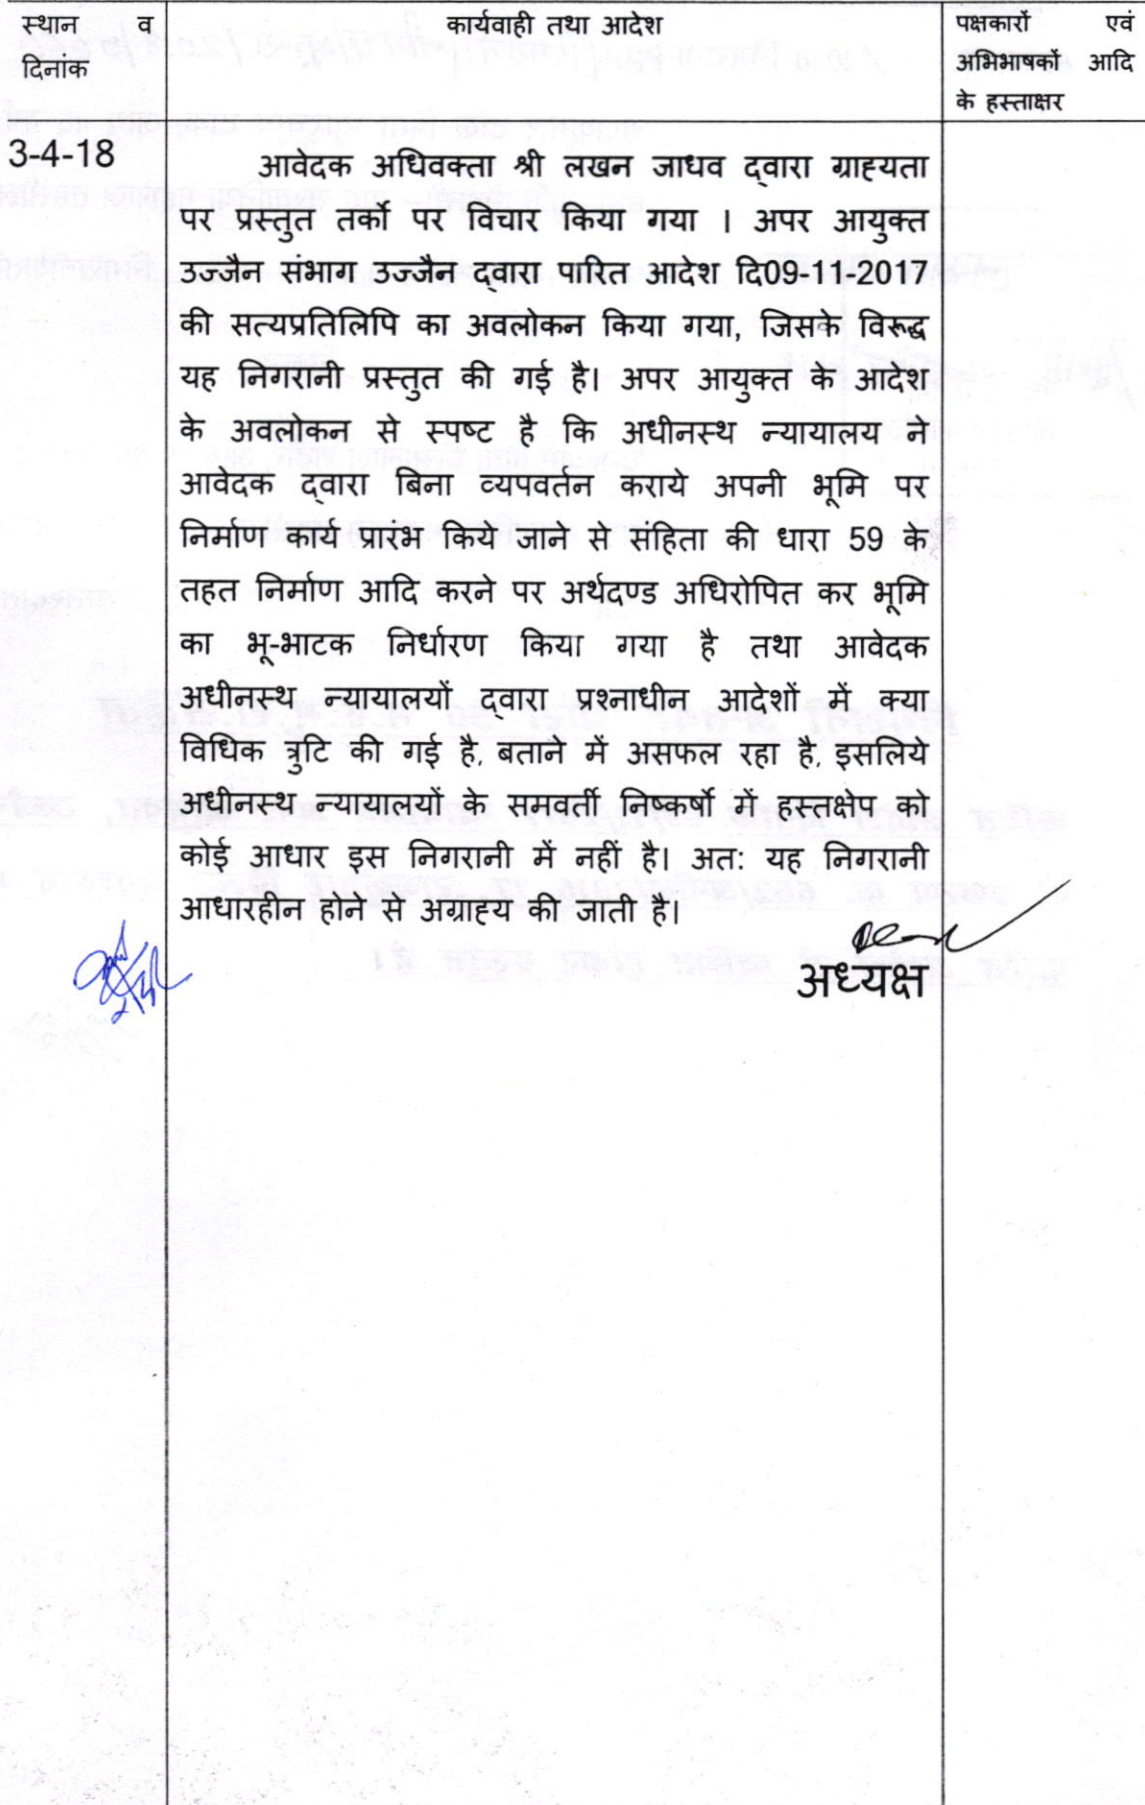 स्थान व
दिनांक
कार्यवाही तथा आदेश
पक्षकारों एवं
अभिभाषकों आदि
के हस्ताक्षर
3-4-18
आवेदक अधिवक्ता श्री लखन जाधव द्वारा ग्राह्यता
पर प्रस्तुत तर्को पर विचार किया गया । अपर आयुक्त
उज्जैन संभाग उज्जैन द्वारा पारित आदेश दि09-11-2017
की सत्यप्रतिलिपि का अवलोकन किया गया, जिसके विरूद्ध
यह निगरानी प्रस्तुत की गई है। अपर आयुक्त के आदेश
के अवलोकन से स्पष्ट है कि अधीनस्थ न्यायालय ने
आवेदक द्वारा बिना व्यपवर्तन कराये अपनी भूमि पर
निर्माण कार्य प्रारंभ किये जाने से संहिता की धारा 59 के
तहत निर्माण आदि करने पर अर्थदण्ड अधिरोपित कर भूमि
का भू-भाटक निर्धारण किया गया है तथा आवेदक
अधीनस्थ न्यायालयों द्वारा प्रश्नाधीन आदेशों में क्या
विधिक त्रुटि की गई है, बताने में असफल रहा है, इसलिये
अधीनस्थ न्यायालयों के समवर्ती निष्कर्षो में हस्तक्षेप को
कोई आधार इस निगरानी में नहीं है। अत: यह निगरानी
आधारहीन होने से अग्राह्य की जाती है।
अध्यक्ष